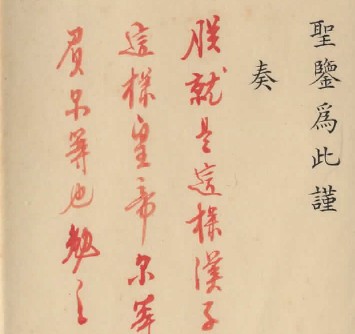 聖鑒爲此謹
奏
朕就是這樣漢子
這樣皇帝尔等
負尔等也勉之